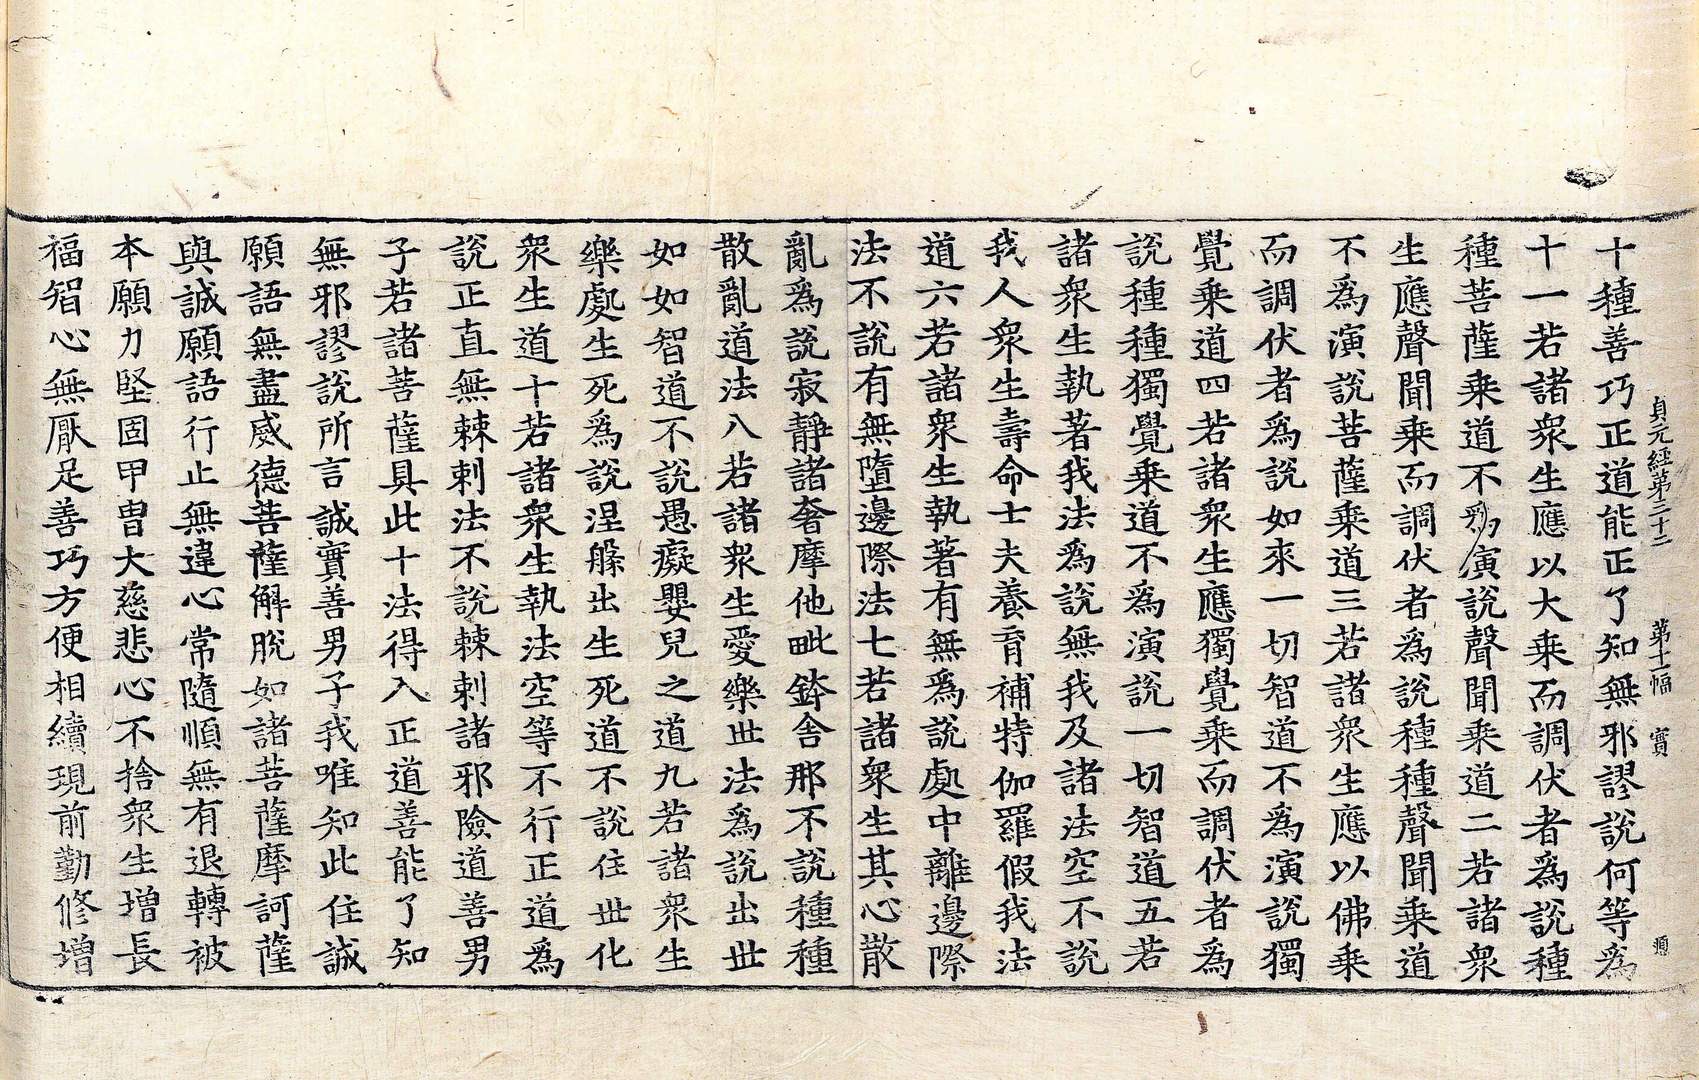 貞元經第三十二 第十一幅 實
十種善巧正道能正了知無邪謬說何等為
十一若諸衆生應以大乗而調伏者為說種
種菩薩乗道不為演說聲聞乗道二若諸衆
生應聲聞乗而調伏者為說種種聲聞乗道
不為演說菩薩乗道三若諸衆生應以佛乗
而調伏者為說如來一切智道不為演說獨
覺乗道四若諸衆生應獨覺乗而調伏者為
說種種獨覺乗道不為演說一切智道五若
諸衆生執著我法為說無我及諸法空不說
我人衆生壽命士夫養育補特伽羅假我法
道六若諸衆生執著有無為說處中離邊際
法不說有無墮邊際法七若諸衆生其心散
亂為說寂靜諸奢摩他毗鉢舍那不說種種
散亂道法八若諸衆生愛樂世法為說出世
如如智道不說愚癡嬰兒之道九若諸衆生
樂處生死為說涅槃出生死道不說住世化
衆生道十若諸衆生執法空等不行正道為
說正直無棘刺法不說棘刺諸邪險道善男
子若諸菩薩具此十法得入正道善能了知
無邪謬說所言誠實善男子我唯知此住誠
願語無盡威德菩薩解脫如諸菩薩摩訶薩
與誠願語行止無違心常隨順無有退轉被
本願力堅固甲冑大慈悲心不捨衆生增長
福智心無厭足善巧方便相續現前勤修增